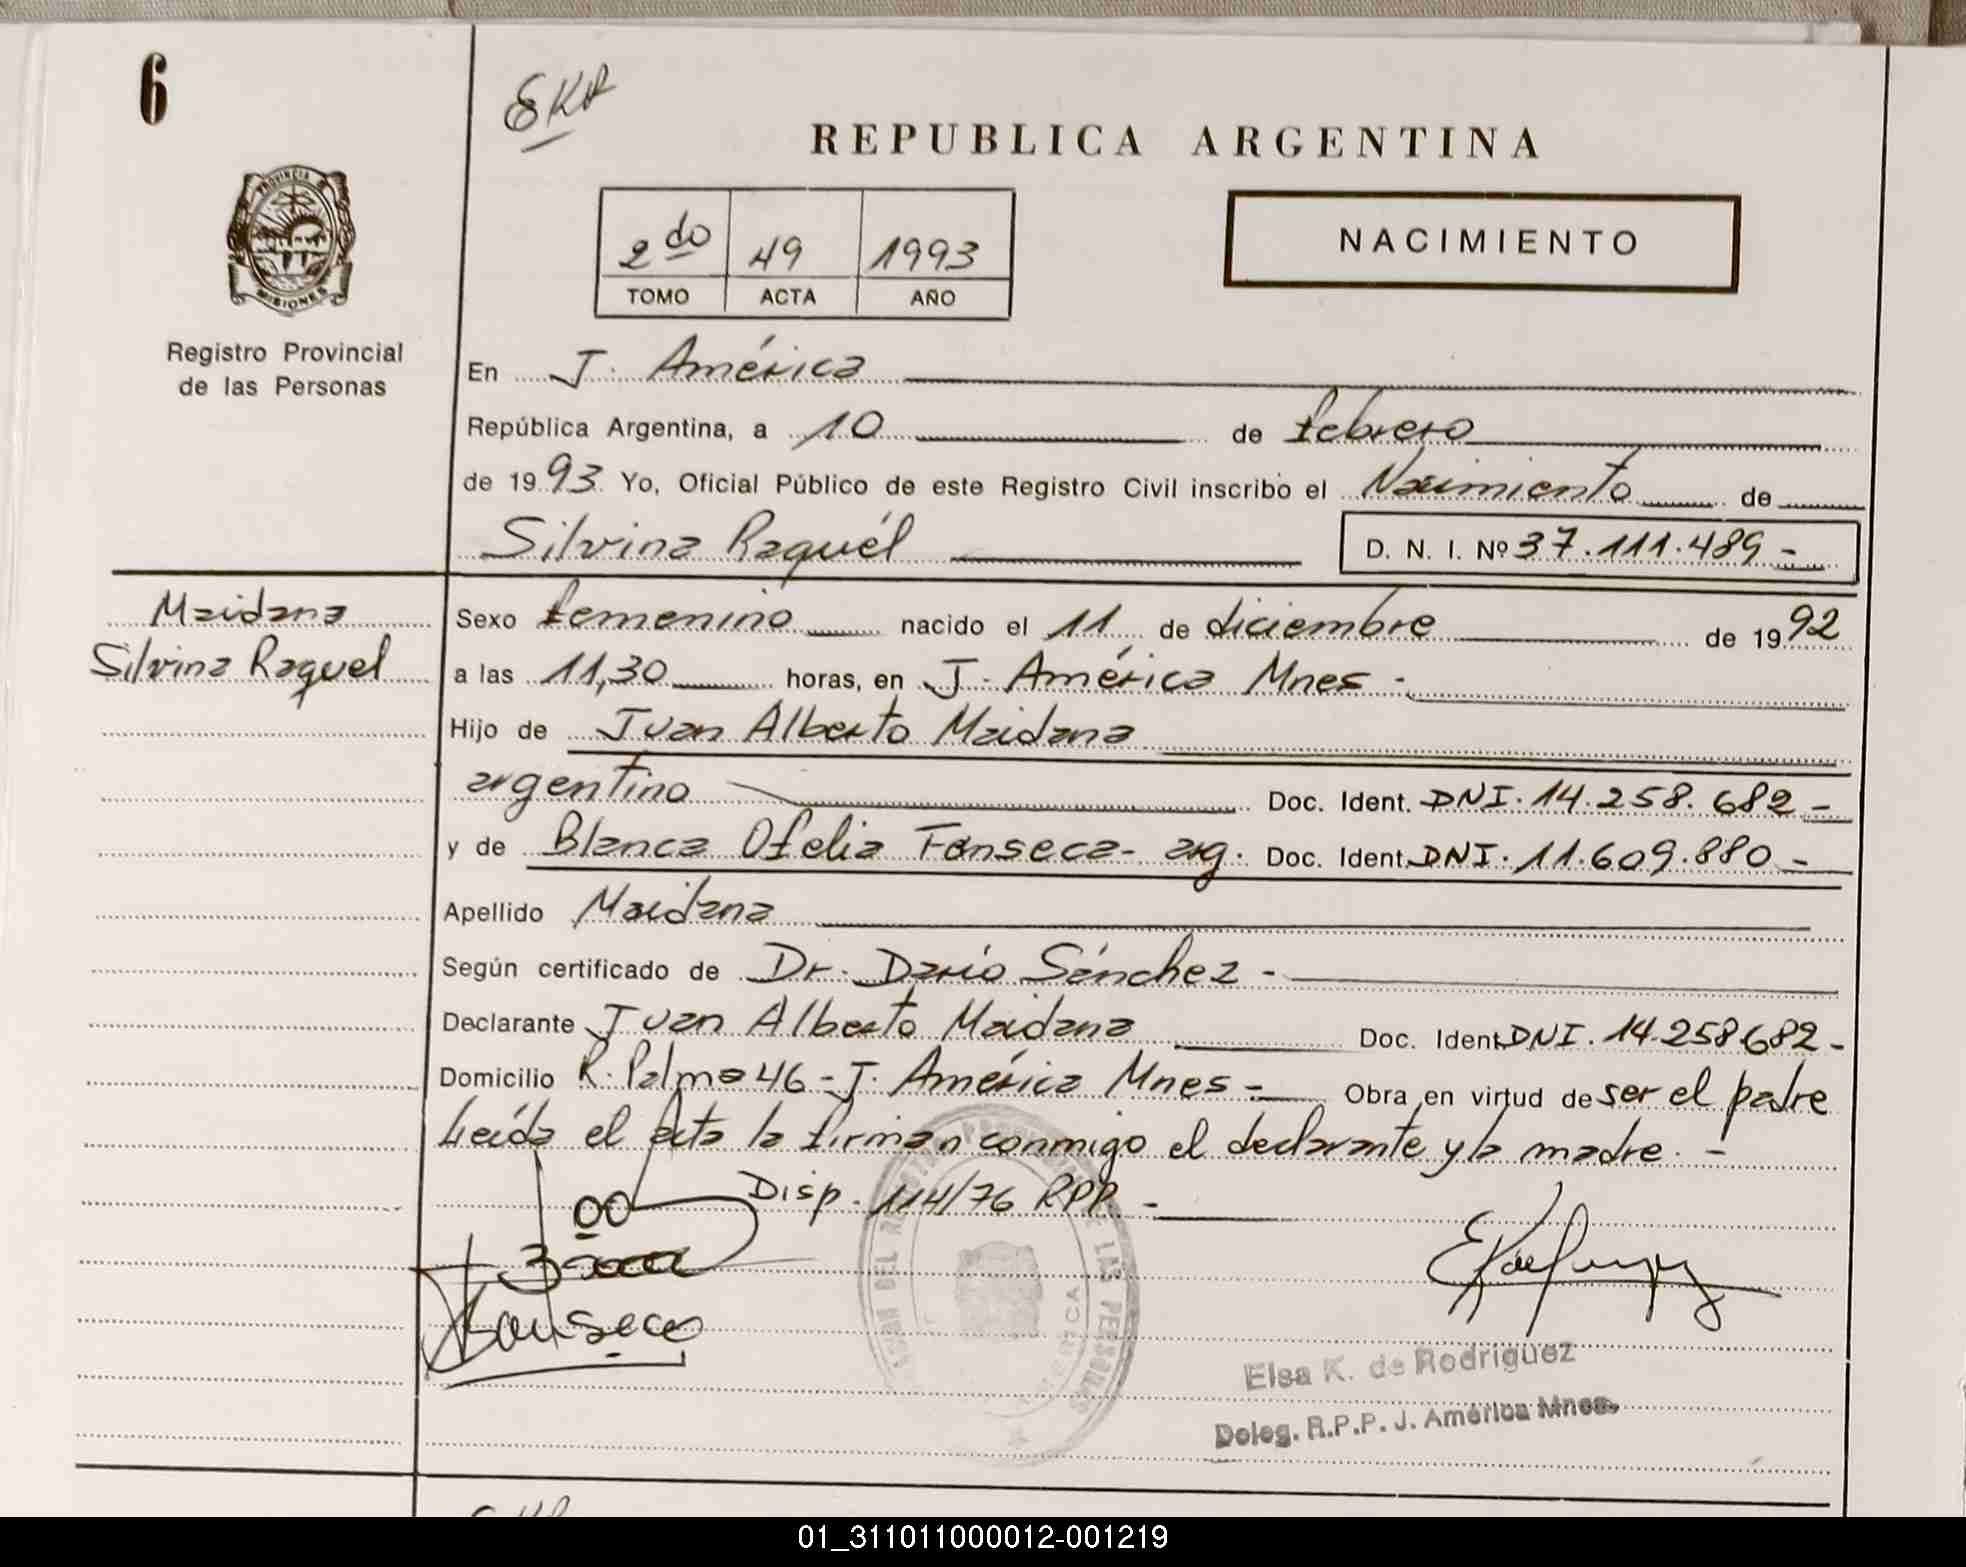 6
EKR
REPUBLICA ARGENTINA
PROVINCIA
MISIONES
2do 49 1993
TOMO ACTA AÑO
NACIMIENTO
Registro Provincial
de las Personas
En J. América
República Argentina, a 10 de febrero
de 1993 Yo, Oficial Público de este Registro Civil inscribo el Nacimiento de
Silvina Raquél D. N. I. Nº 37.111.489-
Maidana
Silvina Raquel
Sexo femenino nacido el 11 de diciembre de 1992
a las 11,30 horas, en J. América Mnes-
Hijo de Juan Alberto Maidana
argentino Doc. Ident. DNI. 14.258.682-
y de Blanca Ofelia Fonseca- arg. Doc. Ident. DNI. 11.609.880-
Apellido Maidana
Según certificado de Dr. Darío Sánchez-
Declarante Juan Alberto Maidana Doc. Ident. DNI. 14.258.682-
Domicilio R. Palma 46 - J. América Mnes- Obra en virtud de ser el padre
Leída el acta la firman conmigo el declarante y la madre. -
Disp. 114/76 RPP. -
Fonseca
Elsa K. de Rodriguez
Deleg. R.P.P. J. América Mnes.
01_311011000012-001219